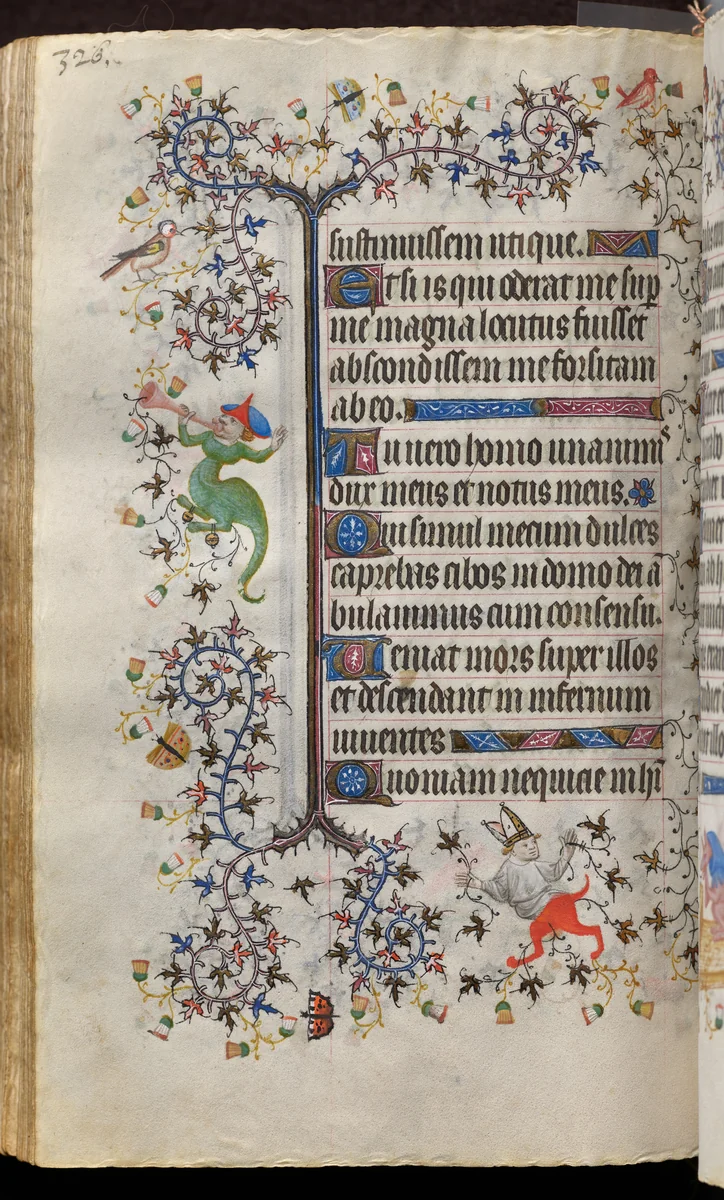 326.
sustinuissem utique.
Et si is qui oderat me sup
me magna locutus fuisset
abscondissem me forsitam
ab eo.
Tu uero homo unanimis
dux meus et notus meus.
Qui simul mecum dulces
capiebas cibos in domo dei a
bulauimus cum consensu.
Ueniat mors super illos
et descendant in infernum
uiuentes
Quoniam nequicie in hi